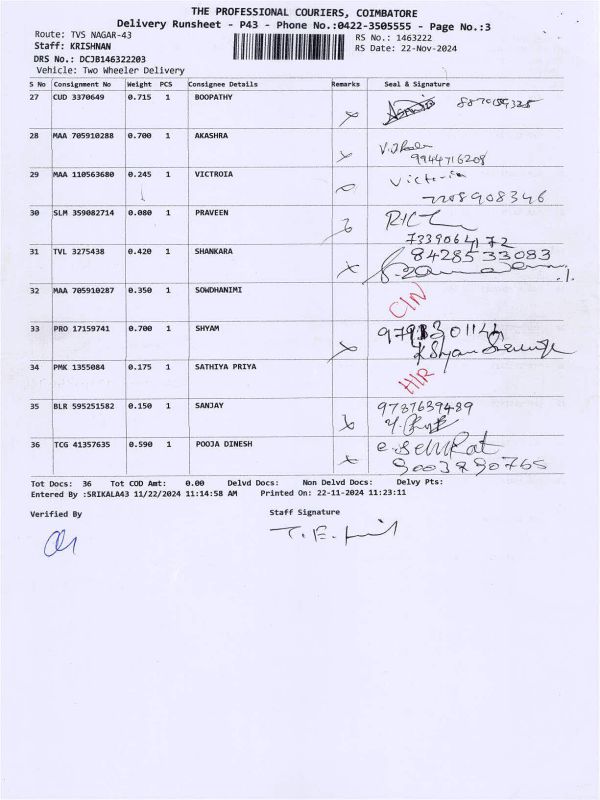 THE PROFESSIONAL COURIERS, COIMBATORE
Delivery Runsheet - P43 - Phone No.:0422-3505555 - Page No.:3
Route: TVS NAGAR-43
RS No.: 1463222
Staff: KRISHNAN
RS Date: 22-Nov-2024
DRS No.: DCJB146322203
Vehicle: Two Wheeler Delivery
S No Consignment No Weight PCS Consignee Details Remarks Seal & Signature
27 CUD 3370649 0.715 1 BOOPATHY
28 MAA 705910288 0.700 1 AKASHRA
9944716208
29 MAA 110563680 0.245 1 VICTROIA Victoria
7708908346
30 SLM 359082714 0.080 1 PRAVEEN
7339064172
31 TVL 3275438 0.420 1 SHANKARA 8428533083
32 MAA 705910287 0.350 1 SOWDHANIMI CIN
33 PRO 17159741 0.700 1 SHYAM
34 PMK 1355084 0.175 1 SATHIYA PRIYA HIR
35 BLR 595251582 0.150 1 SANJAY 9787639489
36 TCG 41357635 0.590 1 POOJA DINESH
9003890765
Tot Docs: 36 Tot COD Amt: 0.00 Delvd Docs: Non Delvd Docs: Delvy Pts:
Entered By :SRIKALA43 11/22/2024 11:14:58 AM Printed On: 22-11-2024 11:23:11
Verified By Staff Signature